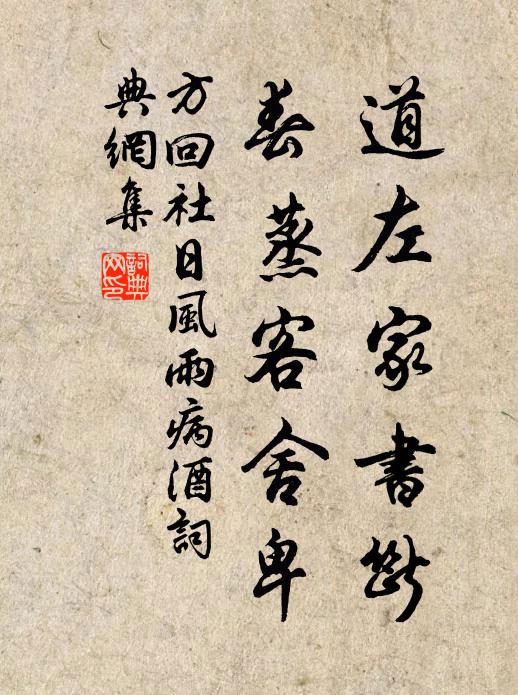 道左家書斷
春蒸客舍卑
方回社日風雨病酒詞
典網集
詞典網印